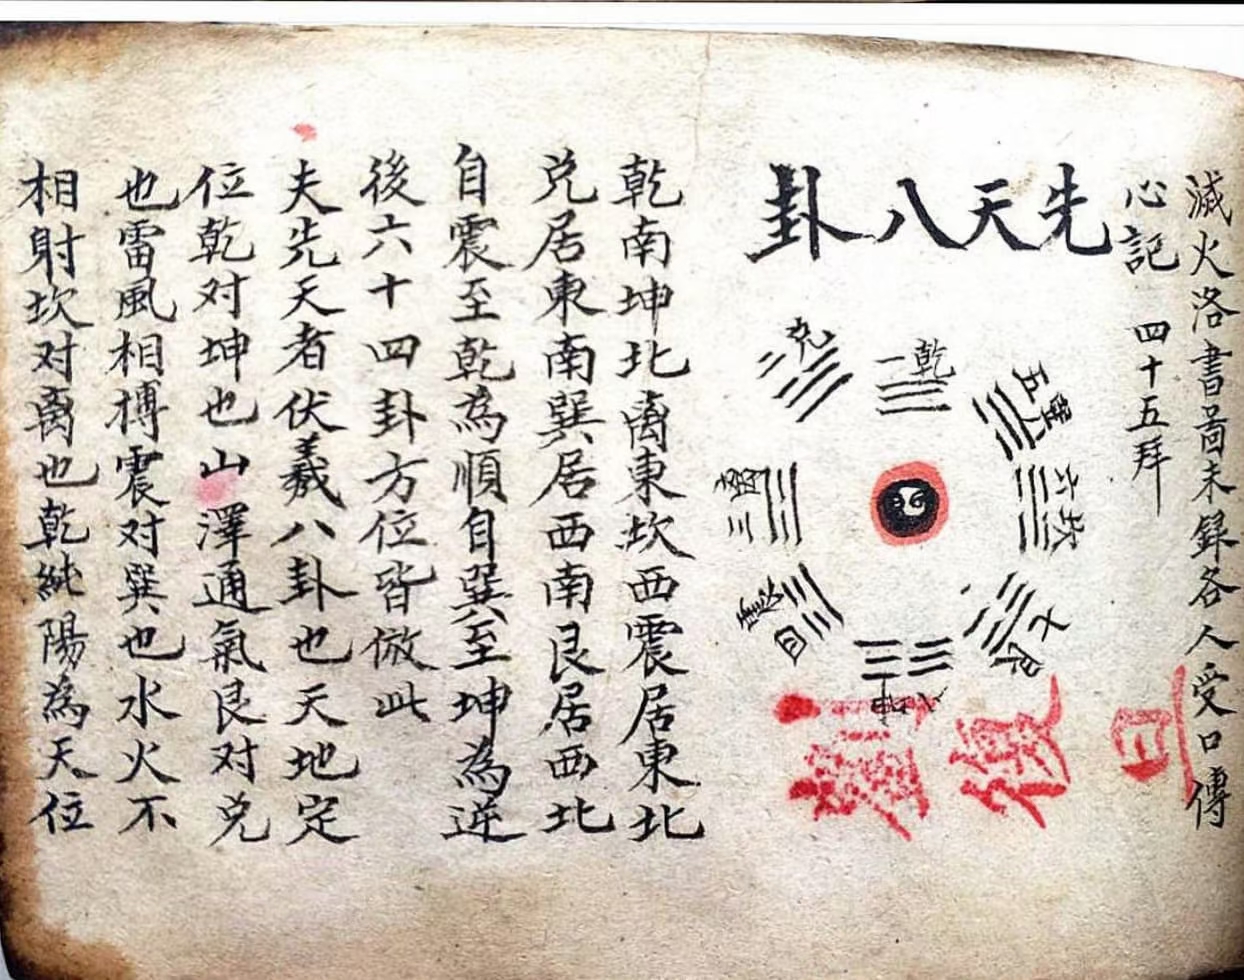 滅火洛書啚未録各人受口傳
心記 四十五拜
先天八卦
一乾
兌
三离
震
五巽
六坎
艮
八坤
乾南坤北离東坎西震居東北
兌居東南巽居西南艮居西北
自震至乾為順自巽至坤為逆
後六十四卦方位皆倣此
夫先天者伏羲八卦也天地定
位乾对坤也山澤通氣艮对兌
也雷風相搏震对巽也水火不
相射坎对离也乾純陽為天位